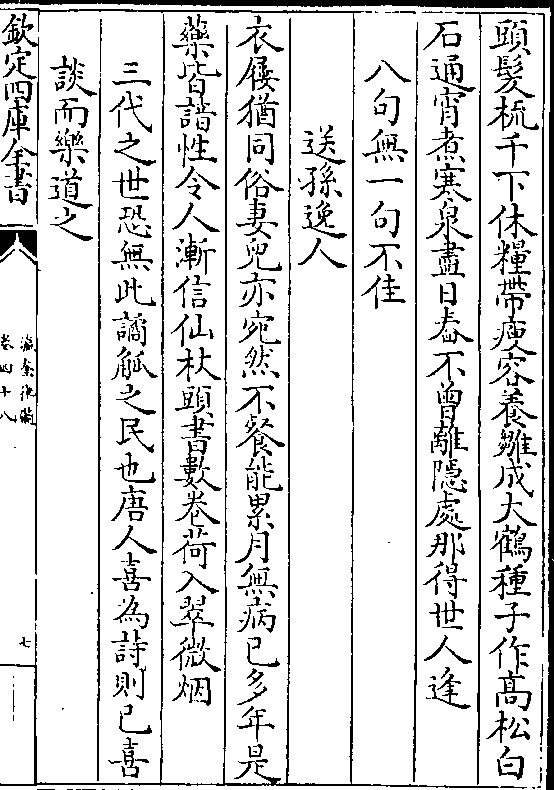 頭髮梳千下休糧帶瘦容養雛成大鶴種子作髙松白
石通宵煮寒泉盡日舂不曾離隱處那得世人逢
八句無一句不佳
送孫逸人
衣屨猶同俗妻兒亦宛然不餐能累月無病已多年是
藥皆諳性令人漸信仙杖頭書數卷荷入翠微烟
三代之世恐無此譎觚之民也唐人喜為詩則已喜
談而樂道之
欽定四庫全書
瀛奎律髓
卷四十八
七